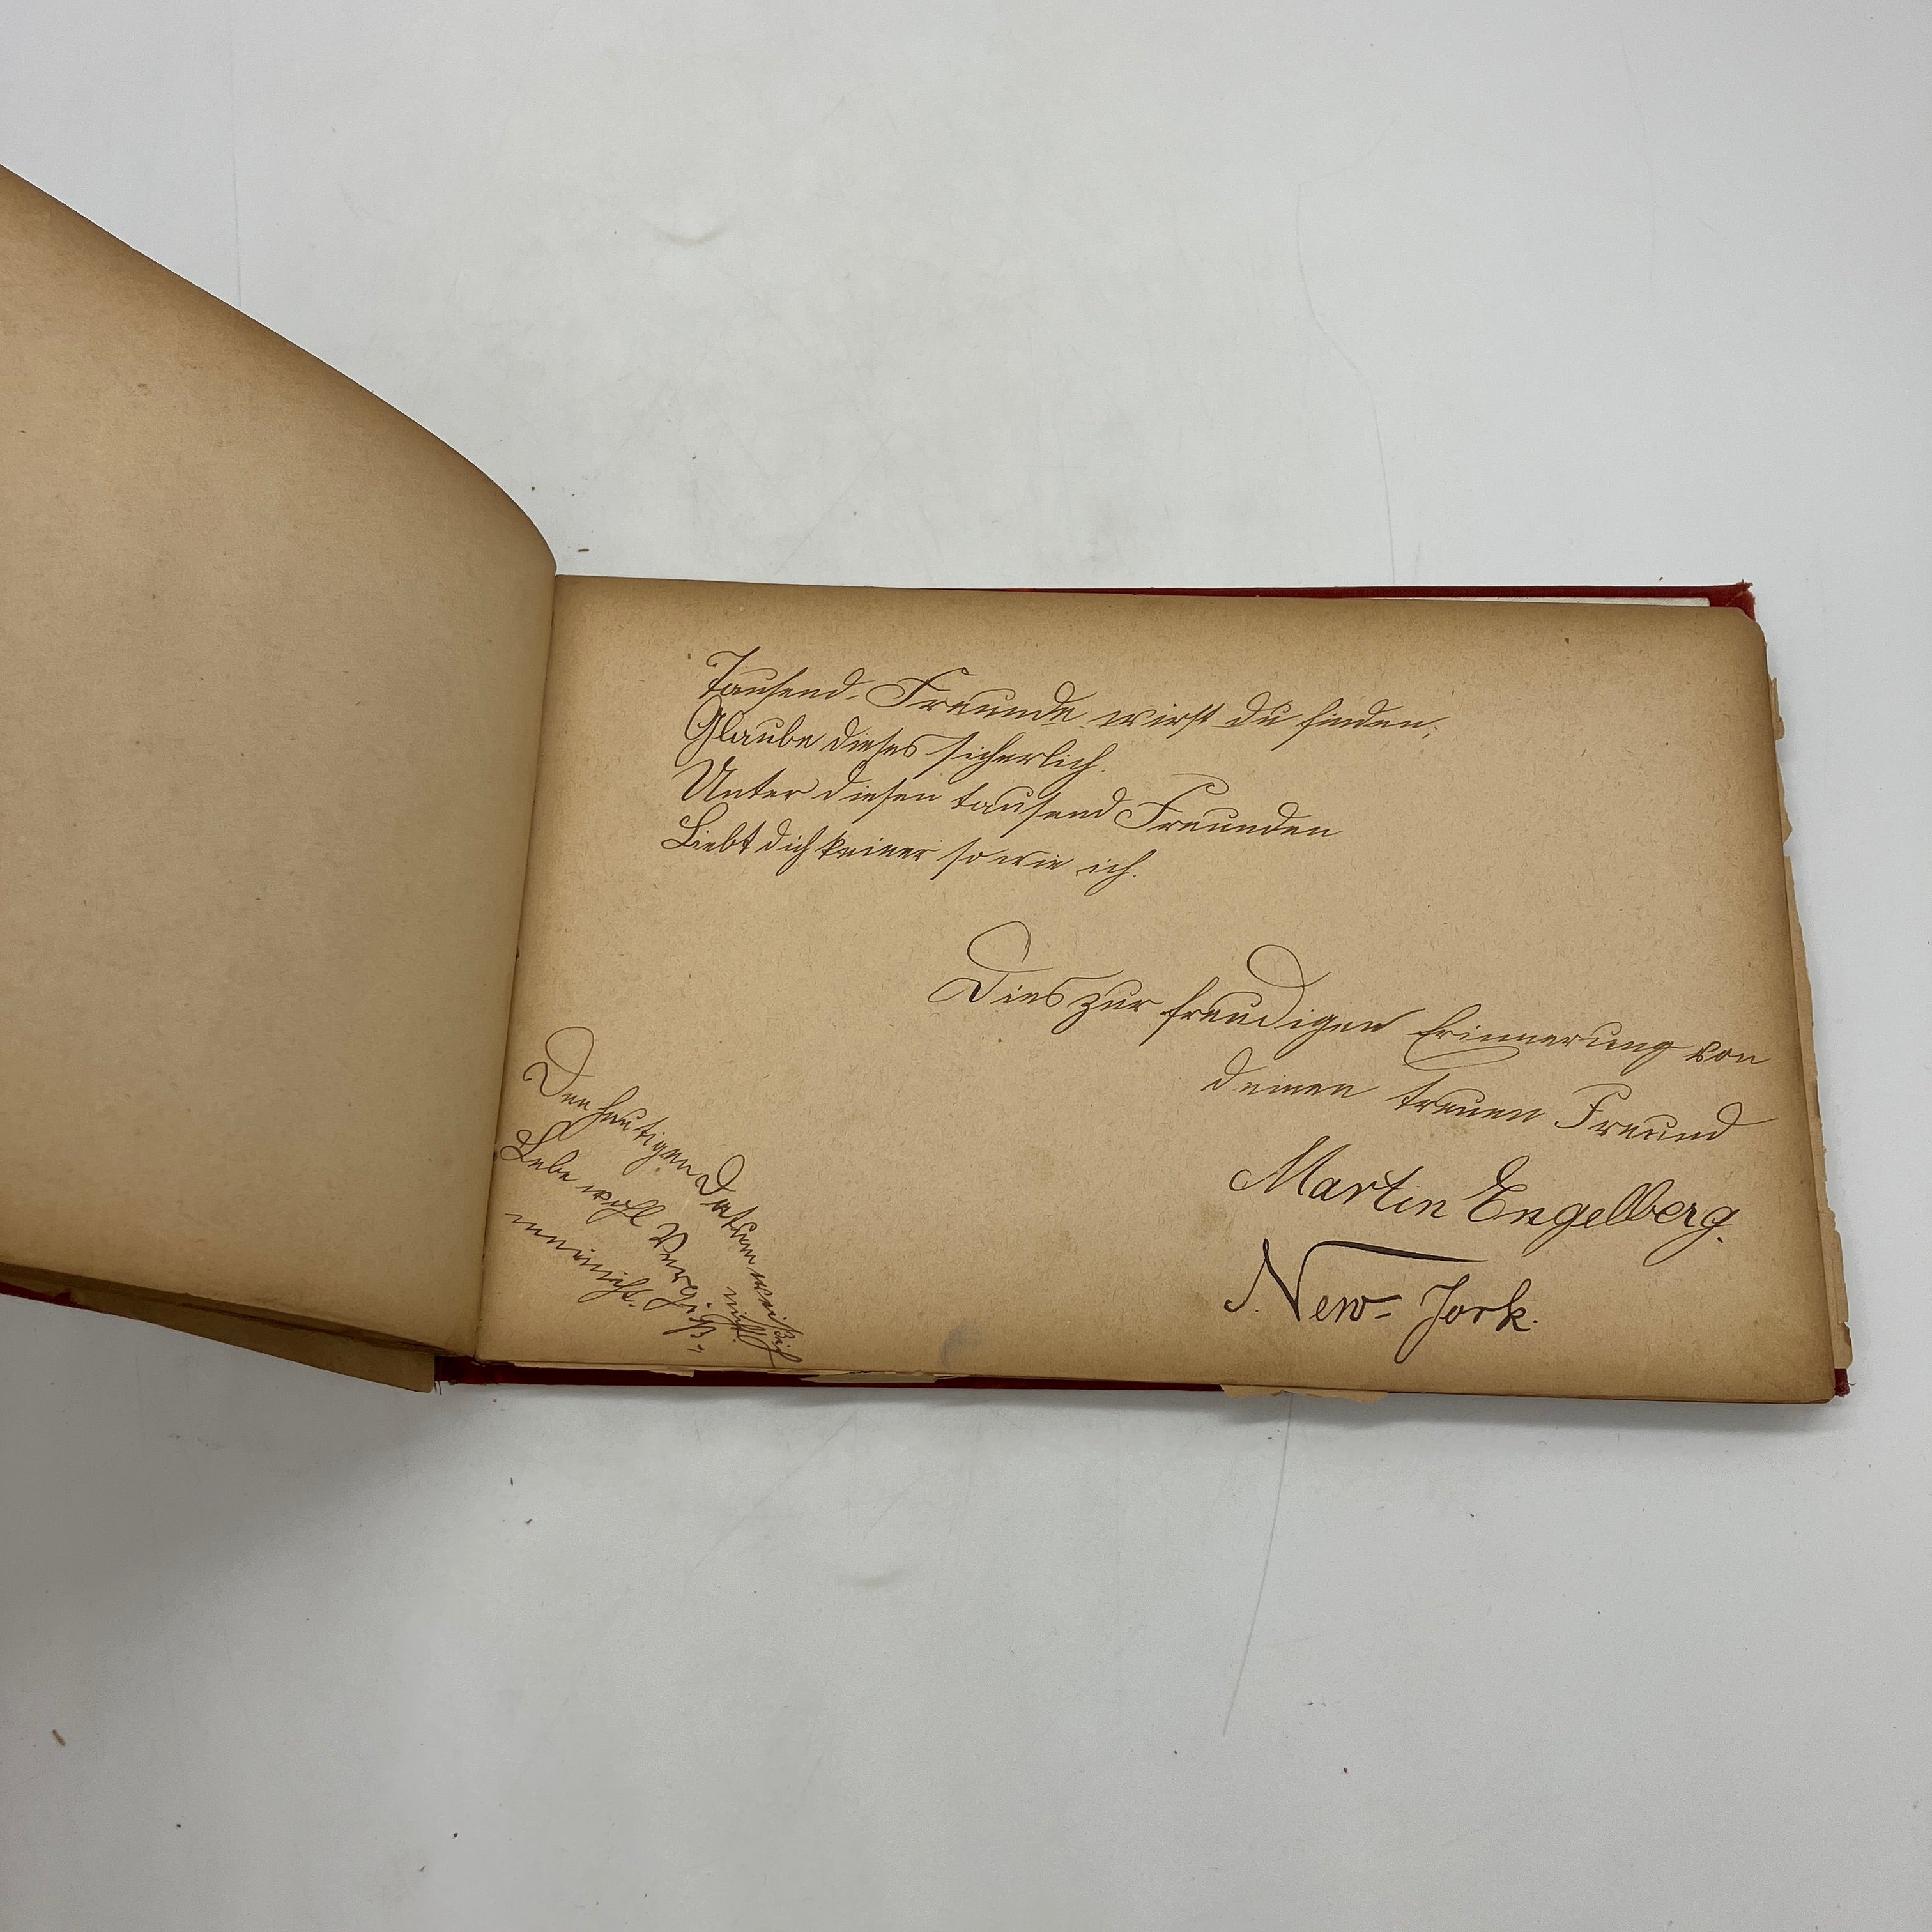 Tausend Freunde wirst du finden,
Glaube dieses sicherlich.
Unter diesen tausend Freunden
Liebt dich keiner so wie ich.
Dies zur freudigen Erinnerung von
deinen treuen Freund
Martin Engelberg.
New-Jork.
Den heutigen Datum weiß ich
nicht.
Lebe wohl Vergiß-
meinnicht.